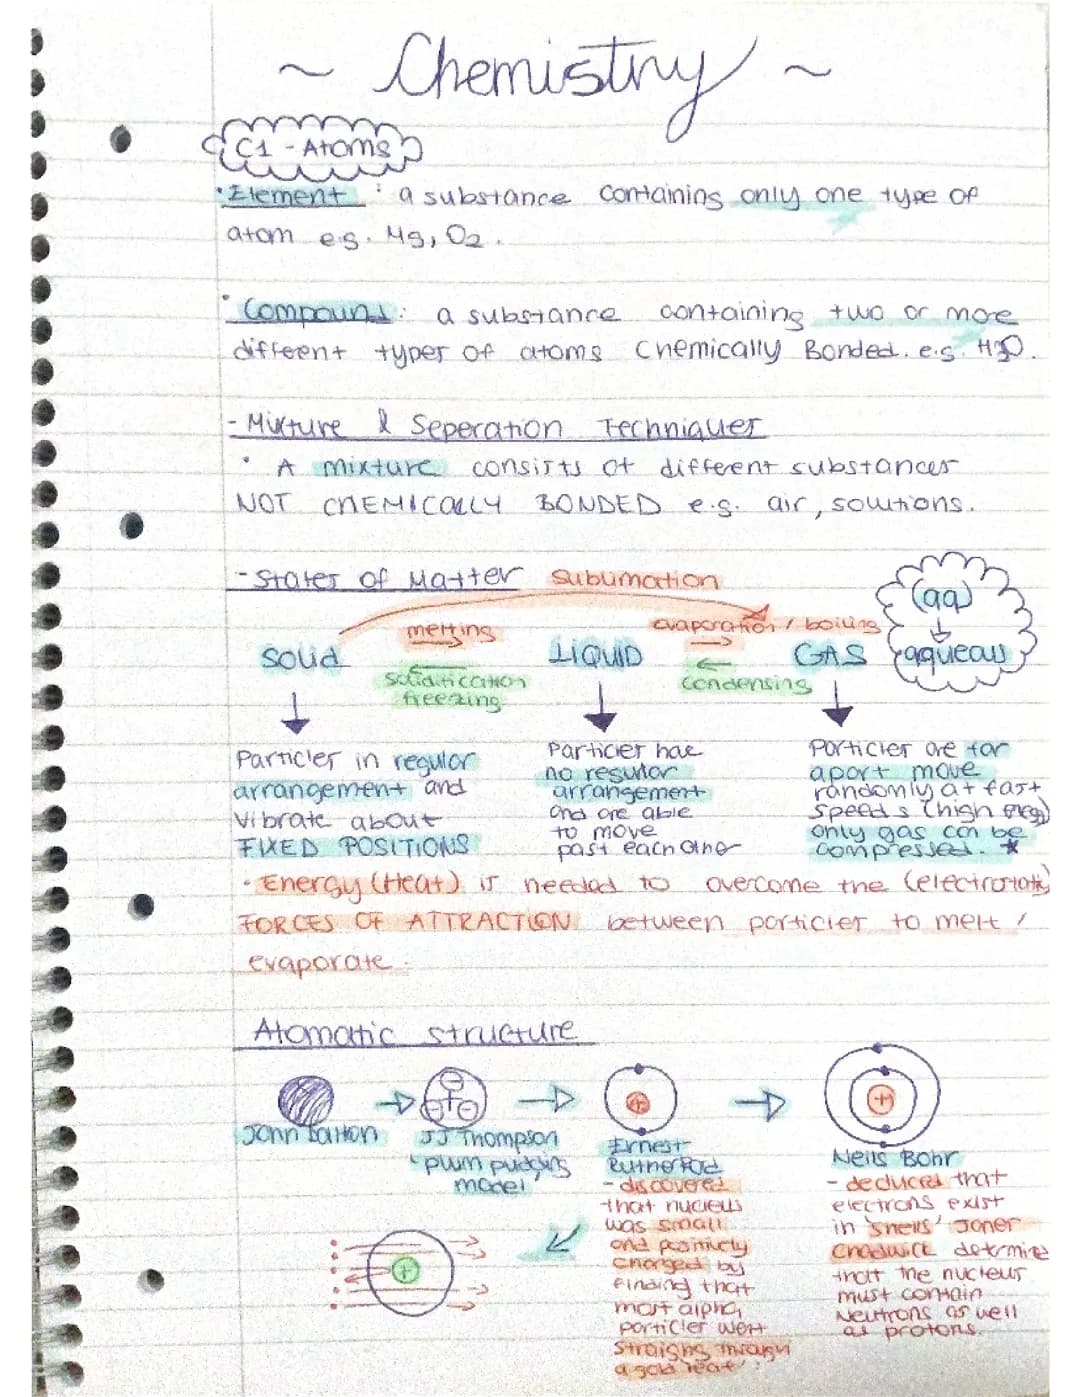 ~ Chemistry ~
C1 - Atoms
• Element : a substance containing only one type of
atom e.g. Mg, O2.
• Compound: a substance containing two or more
different types of atoms chemically Bonded. e.g. H2O.
- Mixture & Seperation Techniques
• A mixture consists of different substances
NOT CHEMICALLY BONDED e.g. air, solutions.
- States of Matter
Sublimation
(aq)
melting
evaporation / boiling
SOLID
LIQUID
GAS
aqueous
solidification
freezing
condensing
Particles in regular
arrangement and
vibrate about
FIXED POSITIONS
Particles have
no regular
arrangement
and are able
to move
past each other
Particles are far
apart move
randomly at fast
speeds (high energy)
only gas can be
compressed. *
• Energy (Heat) is needed to overcome the (electrostatic)
FORCES OF ATTRACTION between particles to melt /
evaporate.
Atomatic structure
John Dalton
JJ Thompson
'plum pudding
model'
Ernest
Rutherford
- discovered
that nucleus
was small
and positively
charged by
finding that
most alpha
particles went
straight through
a gold
Neils Bohr
- deduced that
electrons exist
in 'shells' James
Chadwick determine
that the nucleus
must contain
Neutrons as well
as protons.